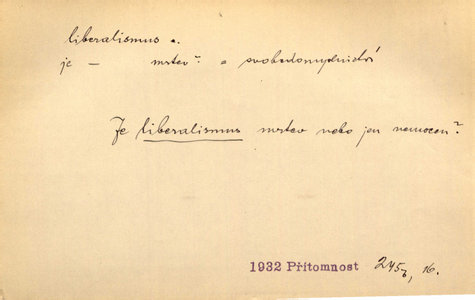 liberalismus
je — mrtev? a svobodomyslnictví
Je liberalismus mrtev nebo jen nemocen?
1932 Přítomnost 245, 16.